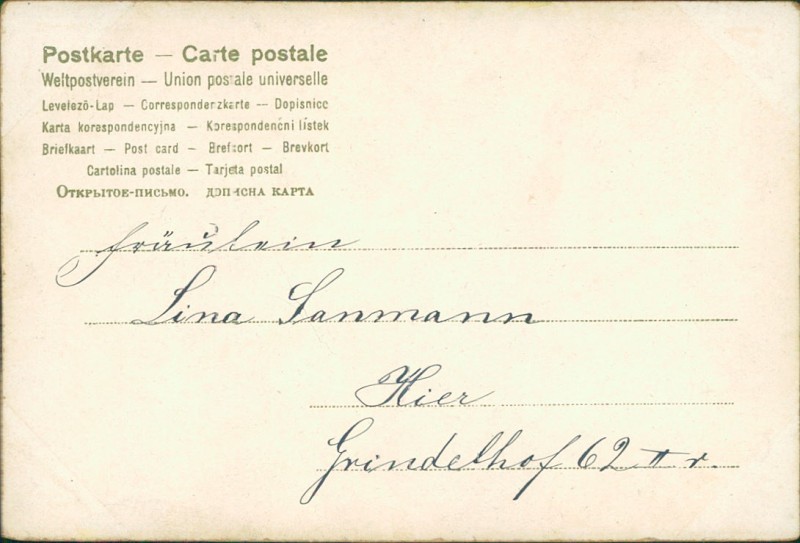 Postkarte — Carte postale
Weltpostverein — Union postale universelle
Levelező-Lap — Correspondenzkarte — Dopisnice
Karta korespondencyjna — Korespondenční lístek
Briefkaart — Post card — Brefcort — Brevkort
Cartolina postale — Tarjeta postal
Открытое-письмо. дописна карта
Fräulein
Lina Sanmann
Hier
Grindelhof 62 II r.